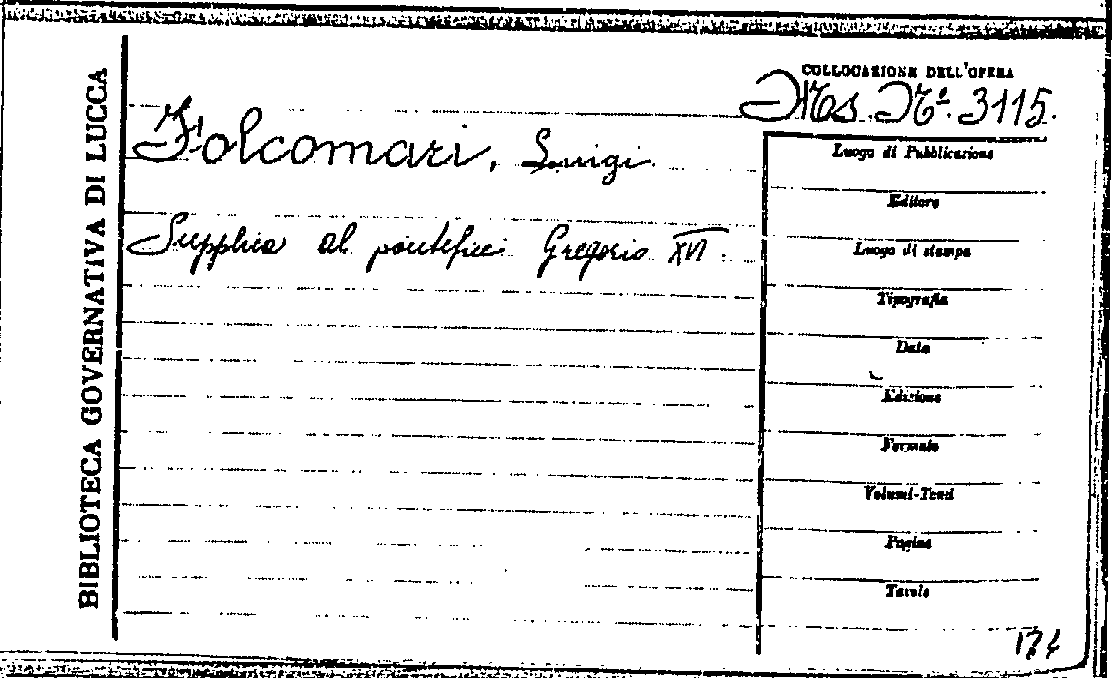 BIBLIOTECA GOVERNATIVA DI LUCCA
COLLOCAZIONE DELL'OPERA
Ms. Nº. 3115.
Folcomari, Luigi.
Supplica al pontefici Gregorio XVI.
Luogo di Pubblicazione
Editore
Luogo di stampa
Tipografia
Data
Edizione
Formato
Volumi-Tomi
Pagine
Tavole